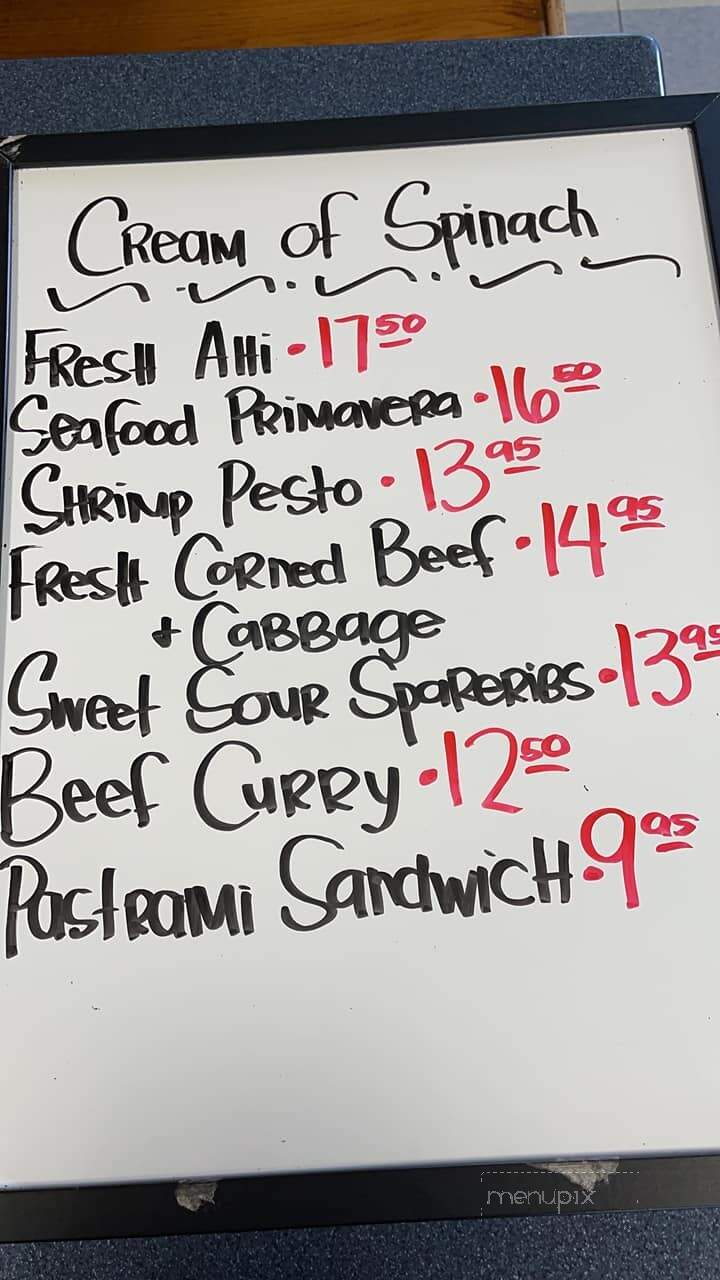 Cream of Spinach
Fresh Ahi · 17 50
Seafood Primavera · 16 50
Shrimp Pesto · 13 95
Fresh Corned Beef · 14 95
+ Cabbage
Sweet Sour Spareribs · 13 95
Beef Curry · 12 50
Pastrami Sandwich · 9 95
menupix